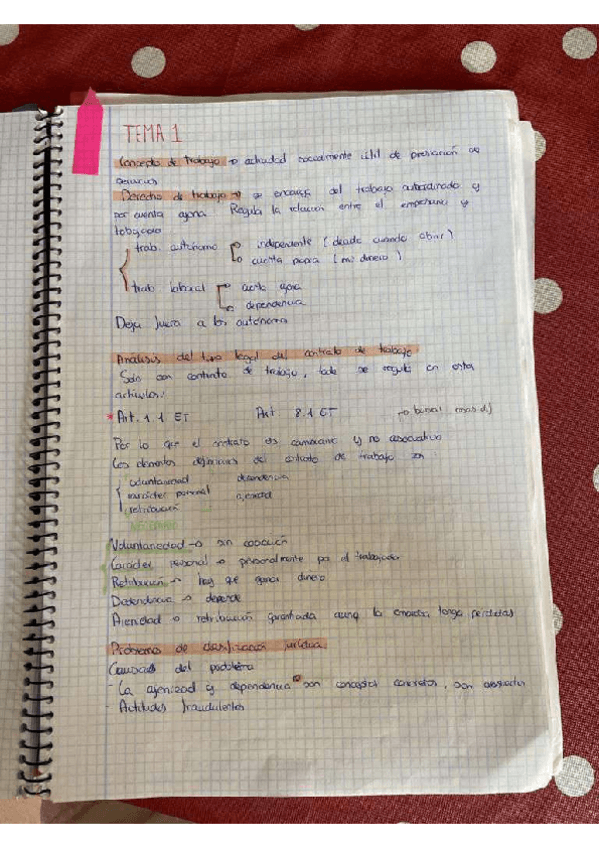 TEMA 1
Concepto de trabajo → actividad socialmente útil de prestación de
servicios
Derecho de trabajo → se encarga del trabajo subordinado y
por cuenta ajena. Regula la relación entre el empresario y
trab. autónomo → independiente (decide cuando abrir)
→ cuenta propia (mi dinero)
trab laboral → cuenta ajena
→ dependencia
Deja fuera a los autónomos
Análisis del tipo legal del contrato de trabajo
Solo con contrato de trabajo, todo se regula en estos
artículos:
* Art. 1.1 ET Art 8.1 ET → buscar
Por lo que el contrato es y no asociativo
Los elementos del contrato de trabajo son
voluntariedad dependencia
carácter personal ajenidad
retribución
Voluntariedad → sin coacción
Carácter personal → personalmente por el trabajador
Retribución → hay que ganar dinero
Dependencia → depende
Ajenidad → retribución garantizada aunq la empresa tenga perdidas
Problemas de clasificación jurídica
Causas del problema
- La ajenidad y dependencia son conceptos concretos, son abstractos
- Actitudes fraudulentas